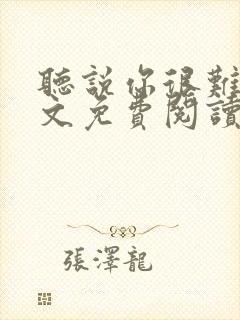 聽說你很難
文免費閱讀
張澤龍